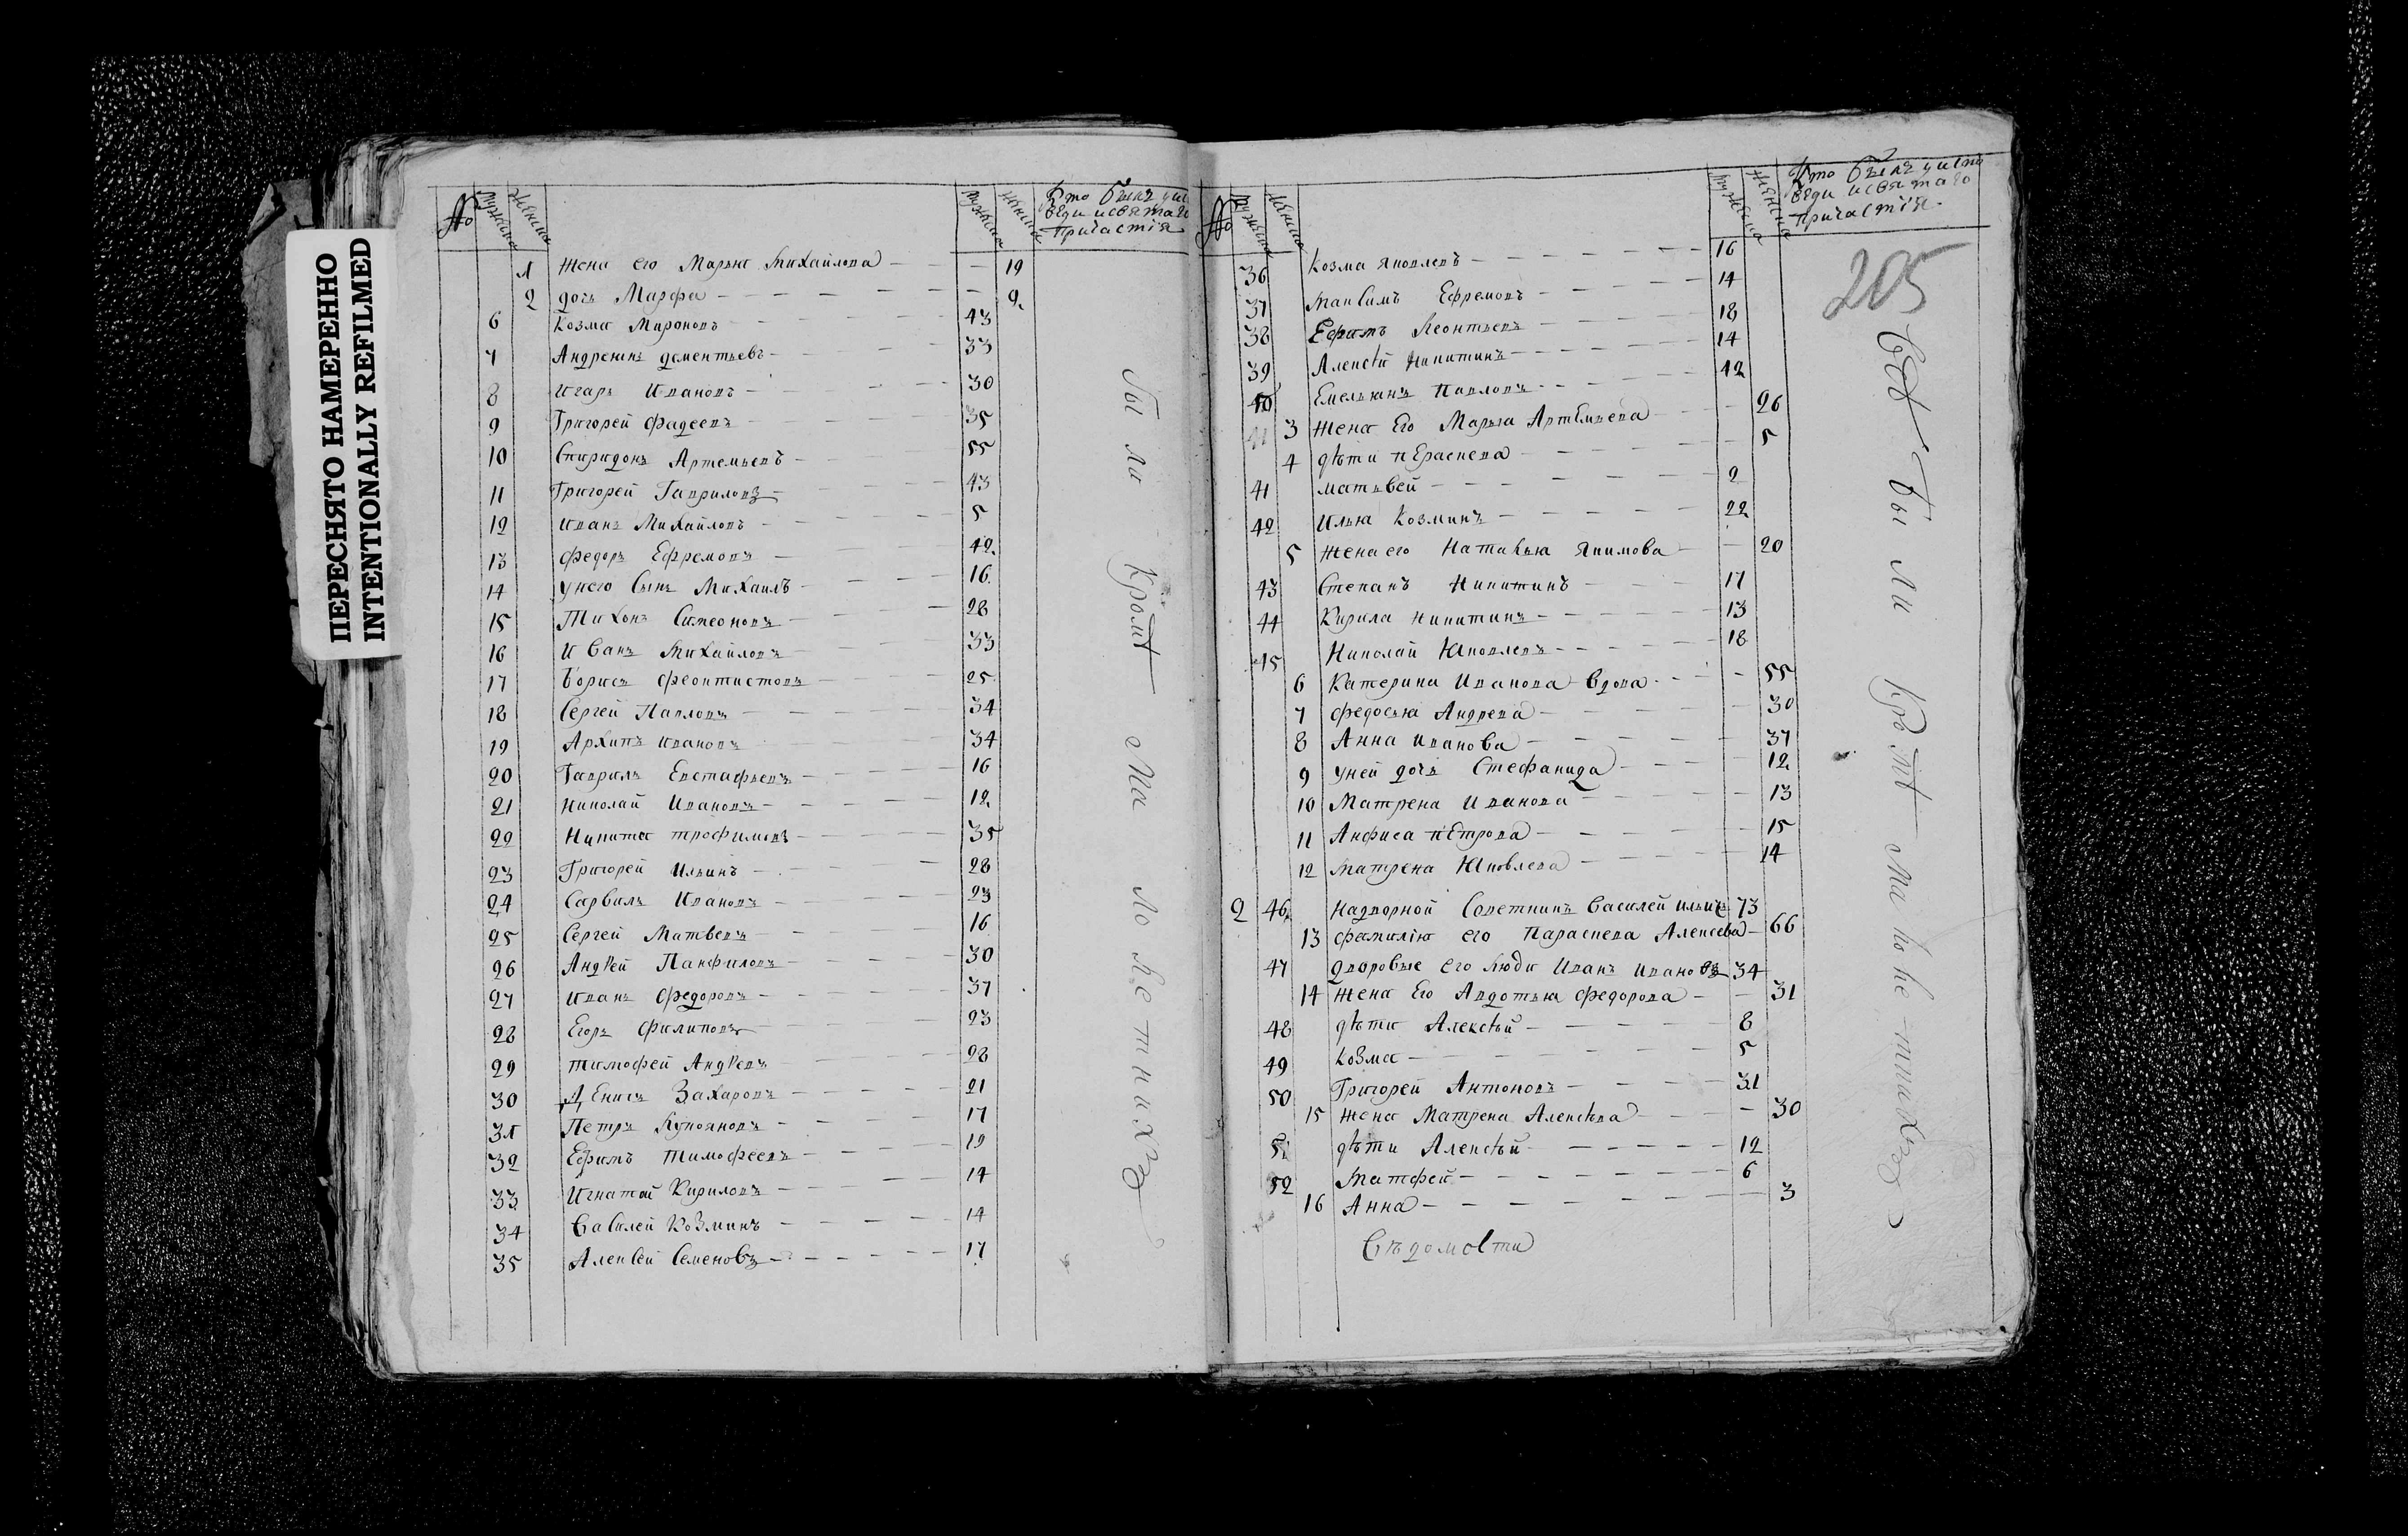 ПЕРЕСНЯТО НАМЕРЕННО
INTENTIONALLY REFILMED
№ мужеска женска мужеска женска Кто былъ уис
веди исвятаго
причастія
1 жена его Марья Михайлова 19
2 дочь Марфа 2
6 Козма Мироновъ 43
7 Андреянъ дементьевъ 33
8 Игарь Ивановъ 30
9 Григорей Фадеевъ 35
10 Спиридонъ Артемьевъ 55
11 Григорей Гавриловъ 43
12 Иванъ Михайловъ 5
13 Федоръ Ефремовъ 42
14 унего сынъ Михаилъ 16
15 Тихонъ Симеоновъ 28
16 Иванъ Михайловъ 33
17 Борисъ Феоктистовъ 25
18 Сергей Павловъ 34
19 Архипъ Ивановъ 34
20 Гаврилъ Евстафьевъ 16
21 Николай Ивановъ 12
22 Никита трофимовъ 35
23 Григорей Ильинъ 28
24 Савилъ Ивановъ 23
25 Сергей Матвевъ 16
26 Андрей Панфиловъ 30
27 Иванъ Федоровъ 37
28 Егоръ Филиповъ 23
29 тимофей Андревъ 28
30 Денисъ Захаровъ 21
31 Петръ Лукояновъ 17
32 Ефимъ Тимофеевъ 19
33 Игнатей Кириловъ 14
34 Василей Козминъ 14
35 Алексей Семеновъ 17
бы ли Кромѣ Ма ло ле тнихъ
205
№ мужеска женска мужеска женска Кто былъ уиспо
веди исвятаго
причастія
36 Козма Яковлевъ 16
37 Максимъ Ефремовъ 14
38 Ефимъ Леонтьевъ 18
39 Алексѣй Никитинъ 14
40 Емельянъ Павловъ 42
3 жена Его Марья Артемьева 26
4 дѣти пЕраскева 5
41 матьвей 2
42 Илья Козминъ 22
5 жена его Наталья Якимова 20
43 Степанъ Никитинъ 17
44 Кирила Никитинъ 13
45 Николай Яковлевъ 18
6 Катерина Иванова вдова 55
7 Федосья Андрева 30
8 Анна Иванова 37
9 уней дочь Стефанида 12
10 Матрена Иванова 13
11 Анфиса пЕтрова 15
12 Матрена Яковлева 14
2 46 Надворной Советникъ Василей ильичъ 73
13 фамилію его Параскева Алексеева 66
47 дворовые его люди Иванъ Ивановъ 34
14 жена Его Авдотья федорова 31
48 дѣти Алексѣй 8
49 козма 5
50 Григорей Антоновъ 31
15 жена Матрена Алексѣва 30
51 дѣти Алексѣй 12
52 Матфей 6
16 Анна 3
Вѣдомости
Всѣ бы ли кромѣ Ма ло ле тнихъ